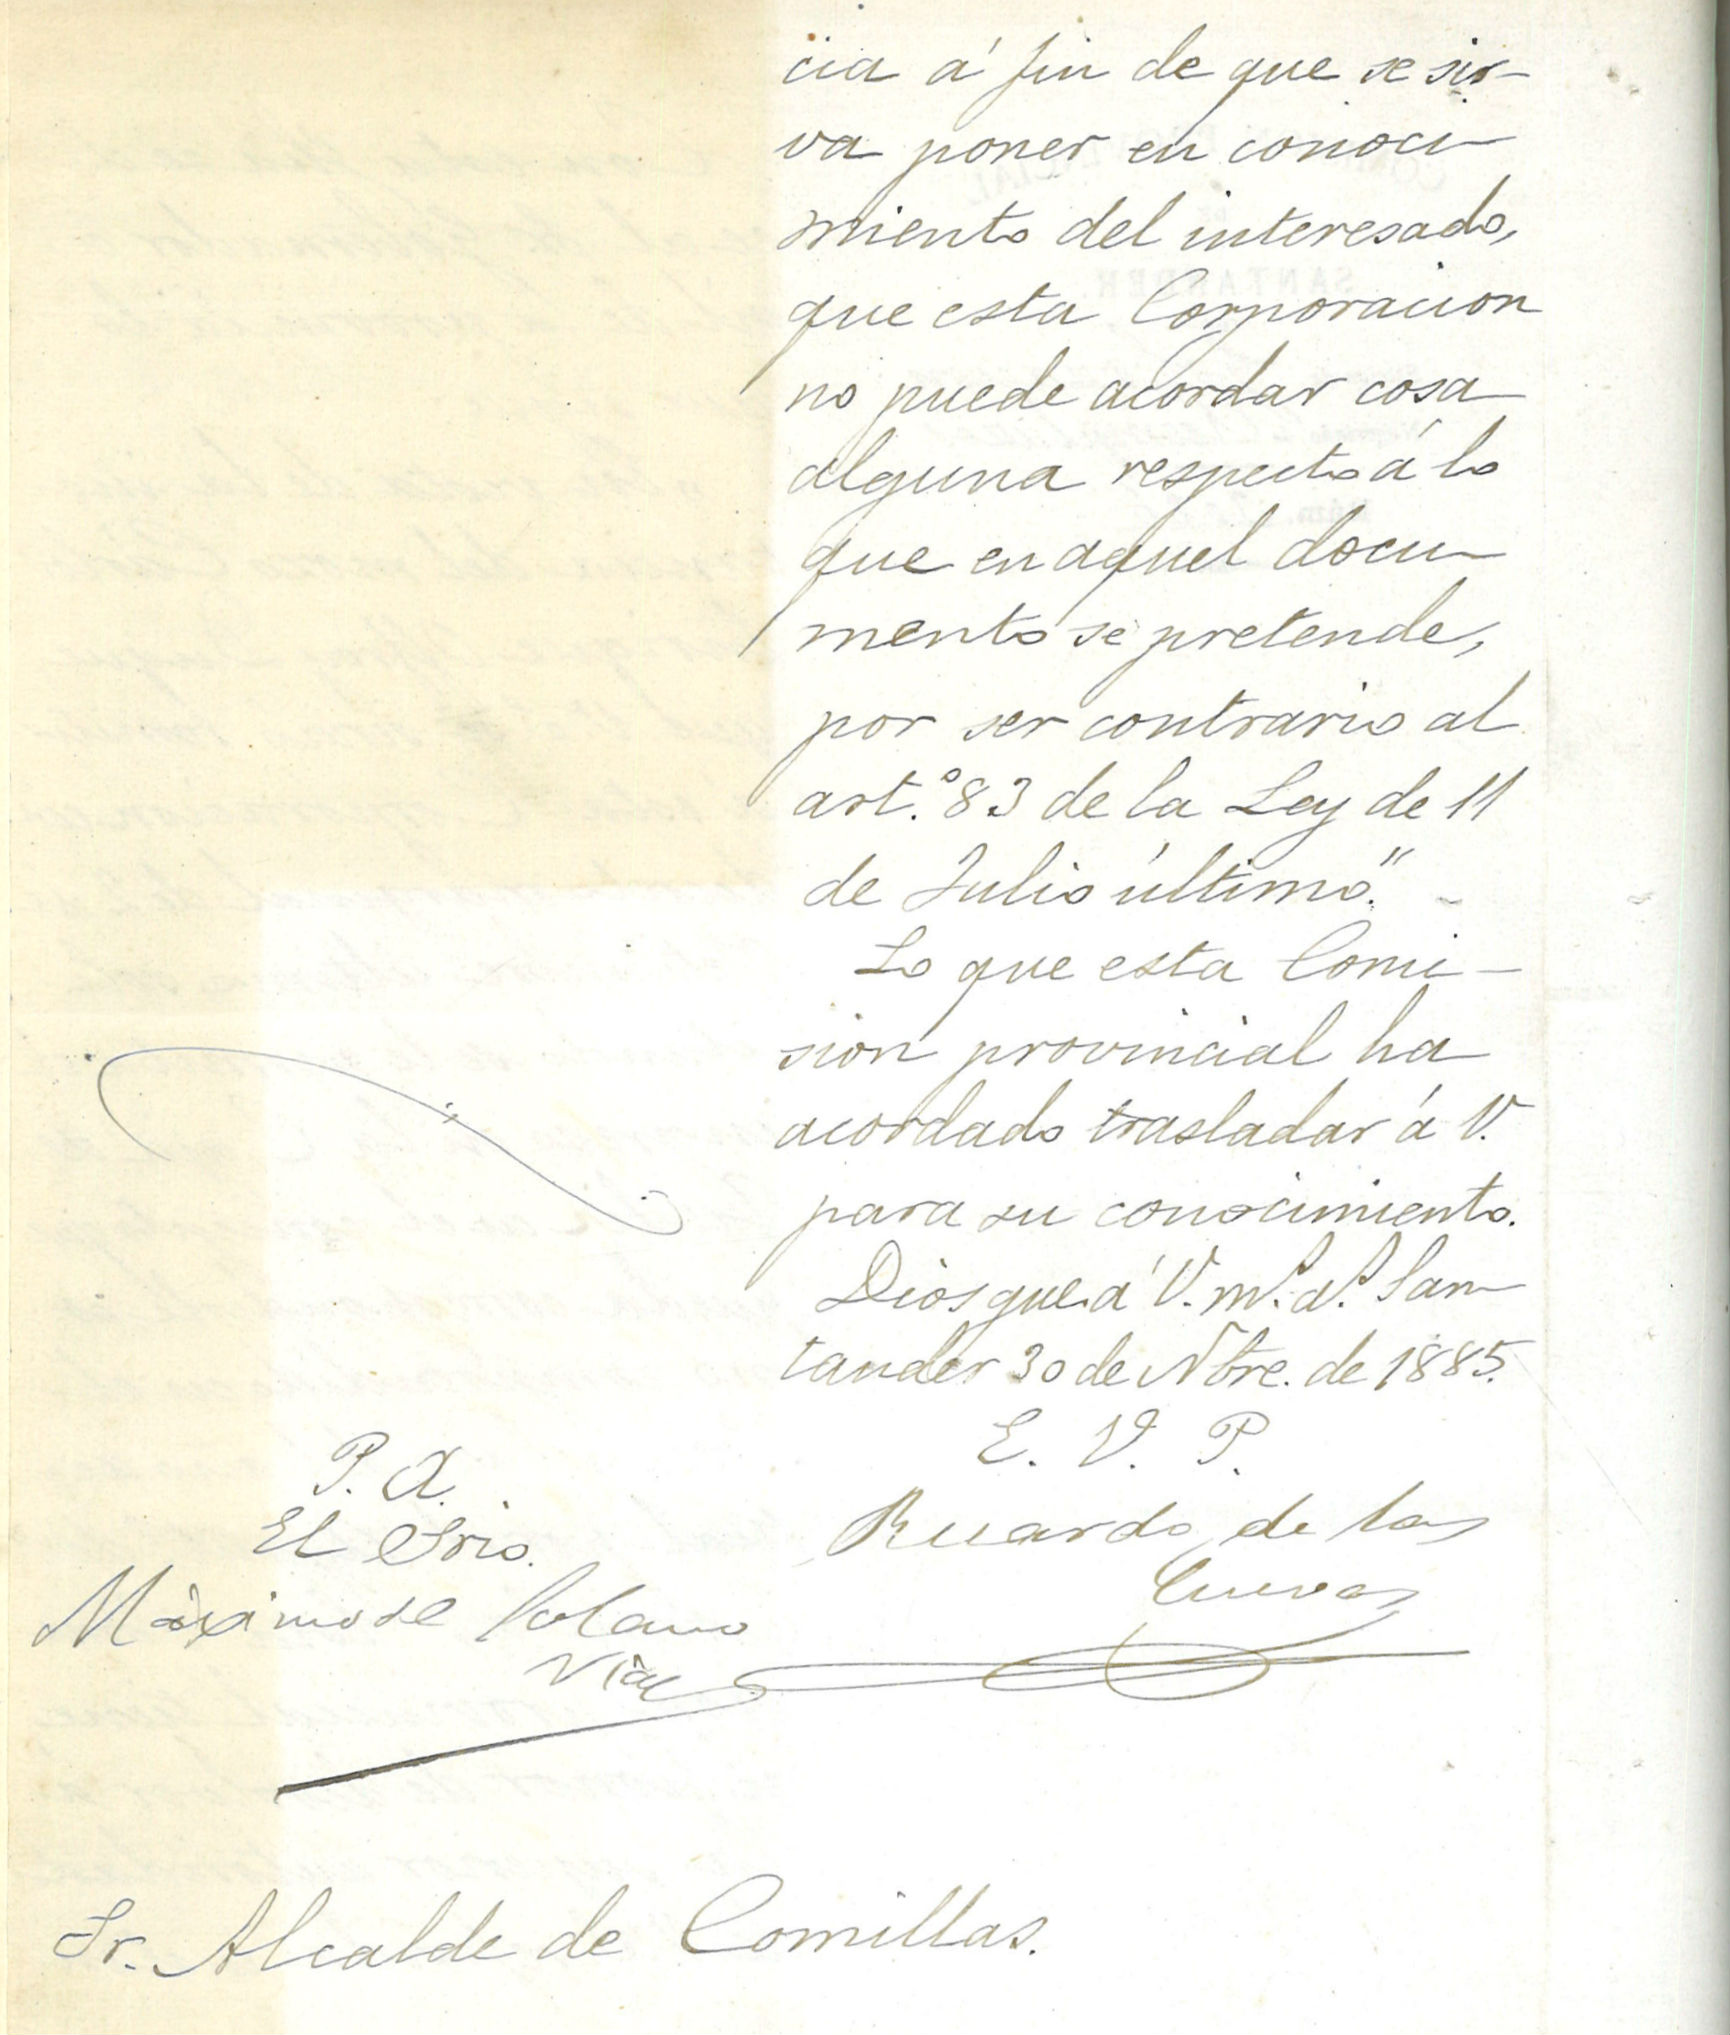 cia á fin de que se sir-
va poner en conoci-
miento del interesado,
que esta Corporacion
no puede acordar cosa
alguna respecto á lo
que en aquel docu-
mento se pretende,
por ser contrario al
art.º 83 de la Ley de 11
de Julio último."
Lo que esta Comi-
sion provincial ha
acordado trasladar á V.
para su conocimiento.
Dios gue. á V. m.s a.s San-
tander 30 de Nbre. de 1885.
E. V. P.
Ricardo de las
Cuevas
P. A.
El Srio.
Máximo de Solano
Vial
Sr. Alcalde de Comillas.